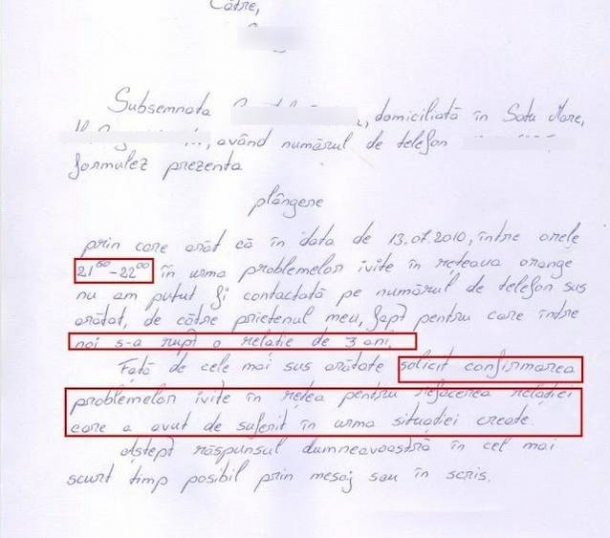 Către,
Subsemnata , domiciliată în Satu Mare,
, având numărul de telefon
formulez prezenta
plângere
prin care arăt că în data de 13.07.2010, între orele
21⁵⁰-22⁰⁰ în urma problemelor ivite în rețeaua orange
nu am putut fi contactată pe numărul de telefon sus
arătat, de către prietenul meu, fapt pentru care între
noi s-a rupt o relație de 3 ani.
Față de cele mai sus arătate solicit confirmarea
problemelor ivite în rețea pentru refacerea relației
care a avut de suferit în urma situației create.
Aștept răspunsul dumneavoastră în cel mai
scurt timp posibil prin mesaj sau în scris.